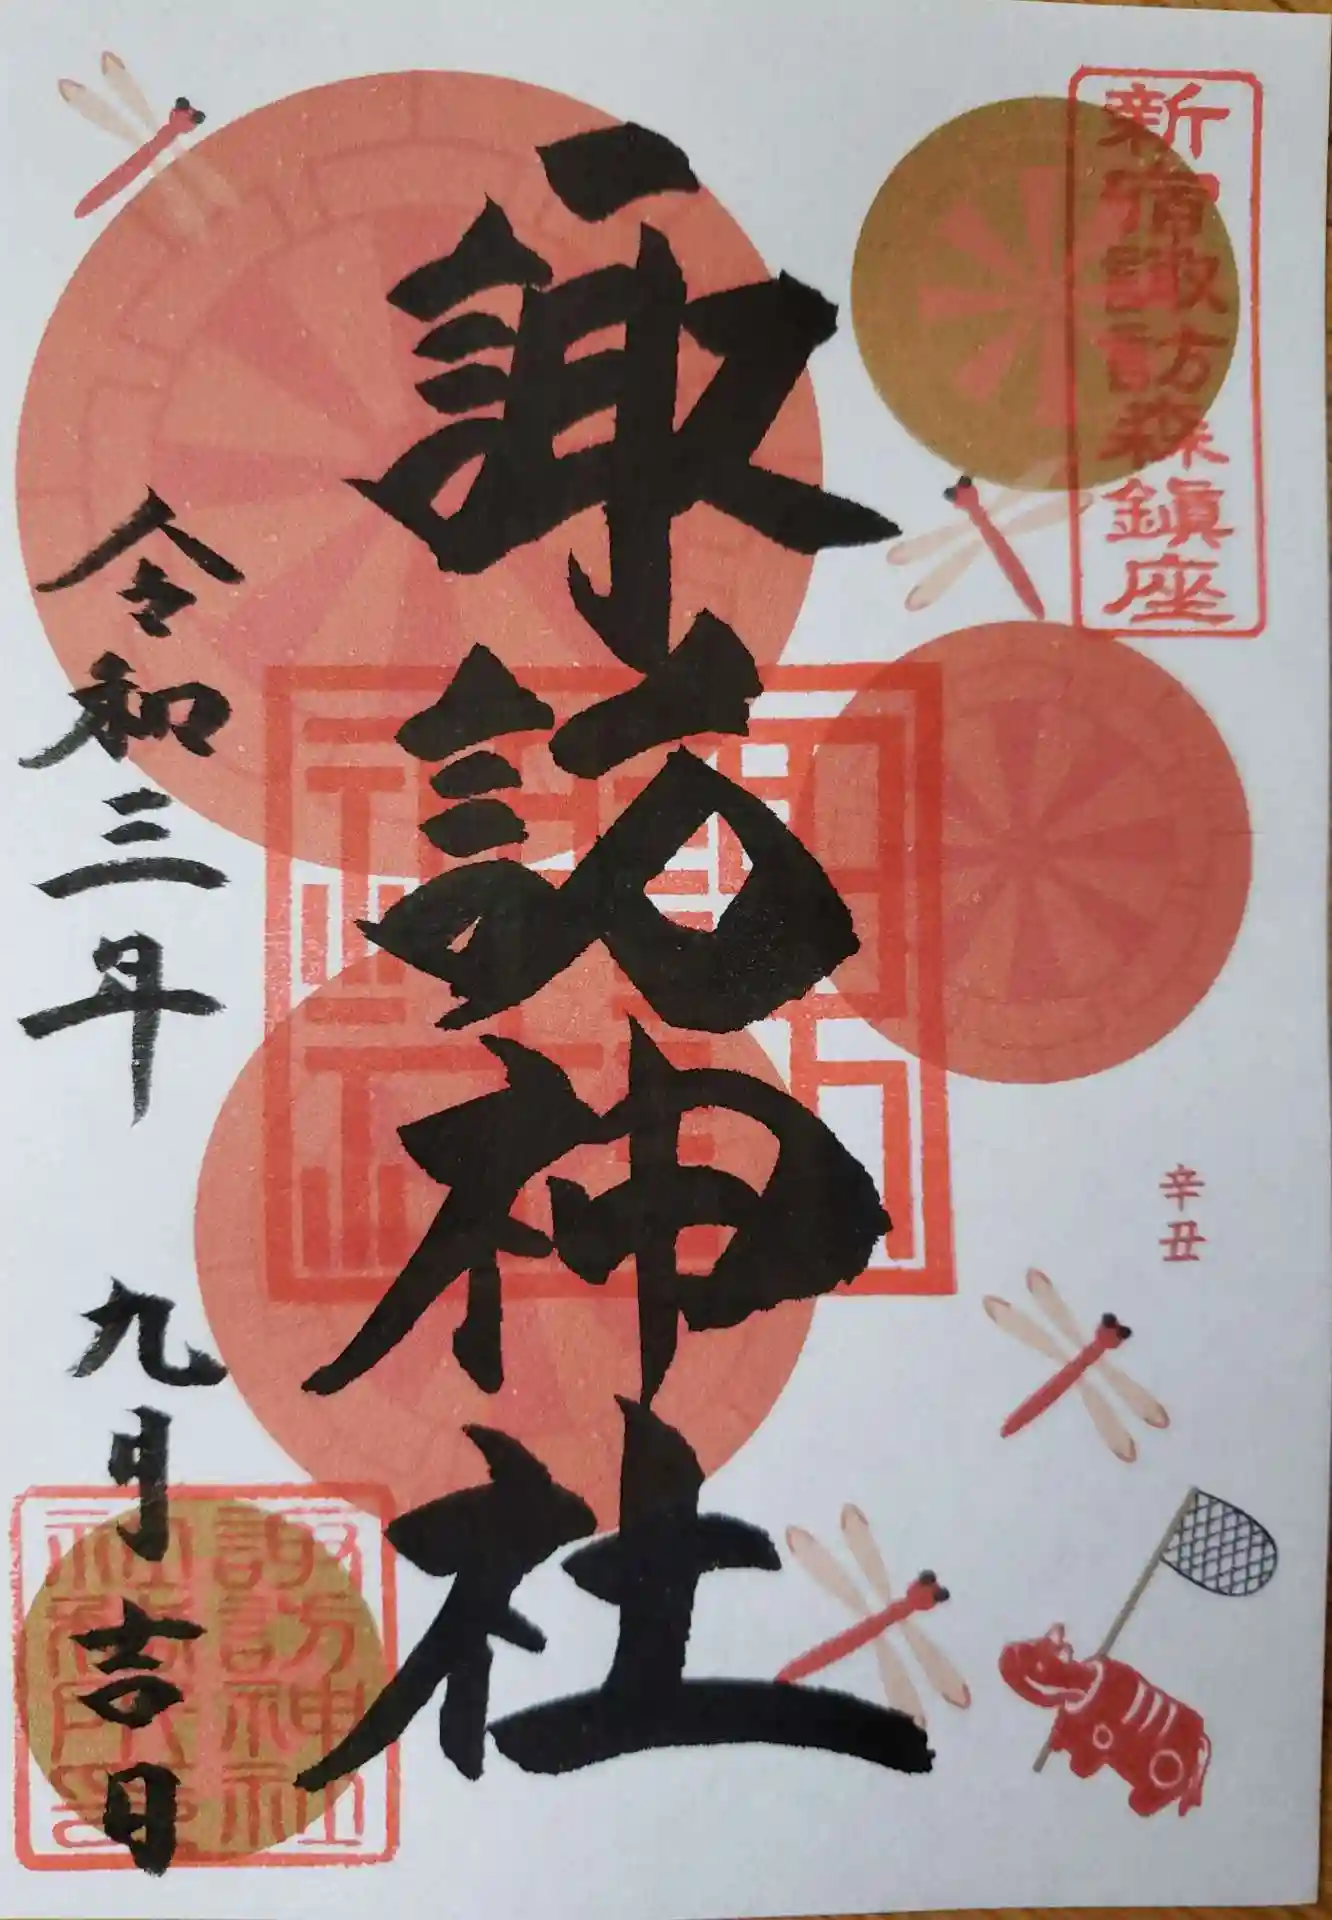 新宿諏訪森鎮座
辛丑
諏訪神社
諏訪神社
諏訪神社
令和三年 九月吉日